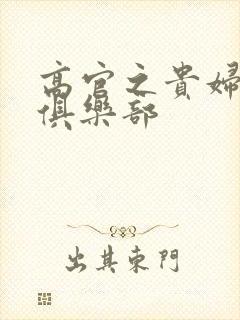 高官之貴婦
俱樂部
出其東門